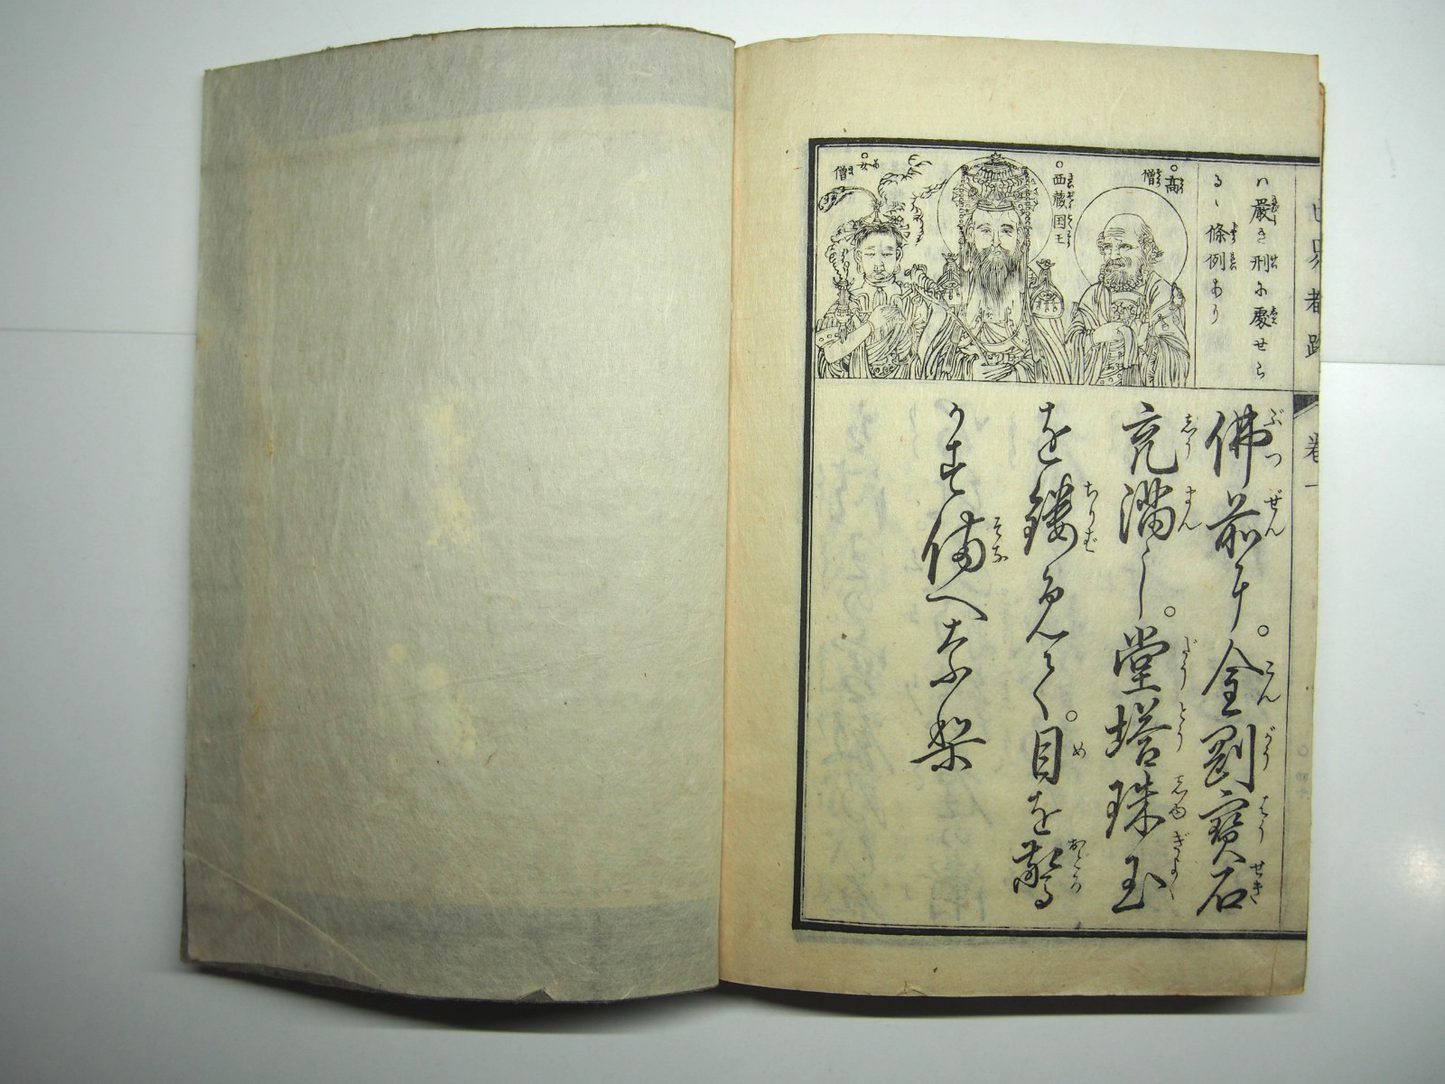 世界都路
卷一
ハ嚴き刑に處せら
るゝ條例あり
高僧
西蔵国王
女僧
佛前に。金剛寶石
充満し。堂塔珠玉
を鏤めて。目を驚
かす備へなり